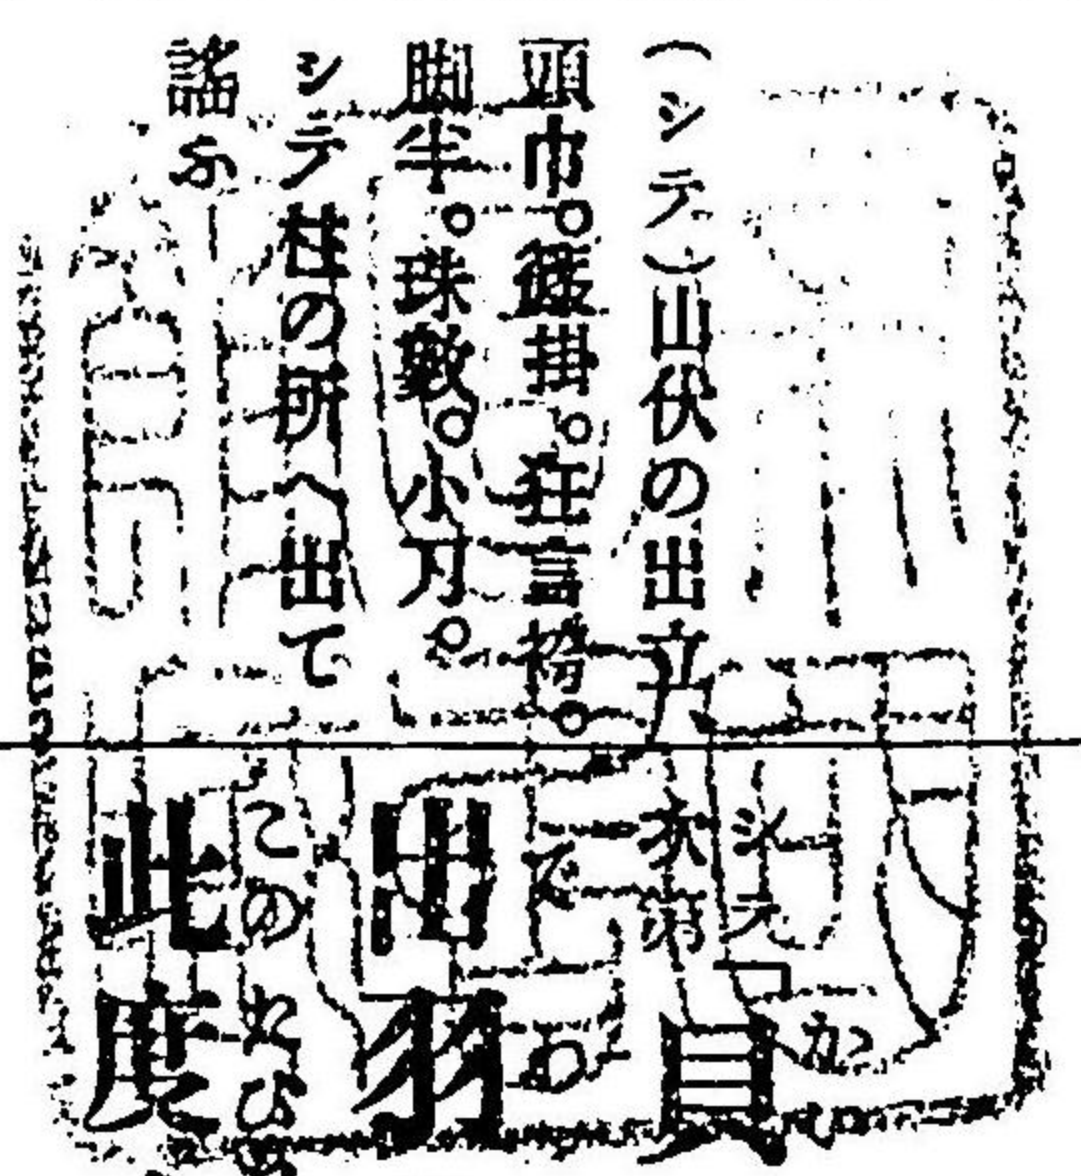 (シテ)山伏の出立
頭巾。篠掛。狂言袴。
脚半。珠數。小刀。
シテ柱の所へ出て
謠ふ
シテ
次第
「貝
か
出羽
では
此度
このたび